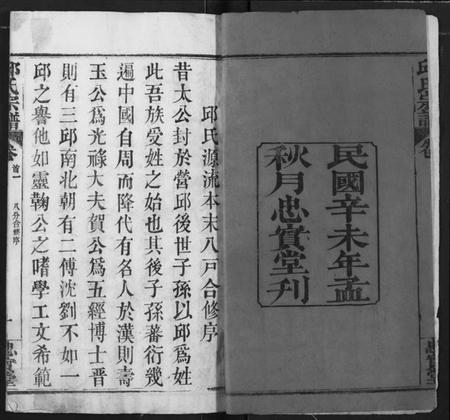 邱氏宗譜 卷
民國辛未年孟
秋月忠實堂刊
邱氏源流本末八戸合修序
昔太公封於營邱後世子孫以邱爲姓
此吾族受姓之始也其後子孫蕃衍幾
遍中國自周而降代有名人於漢則壽
玉公爲光祿大夫賀公爲五經博士晋
則有三邱南北朝有二傅沈劉不如一
邱之譽他如靈鞠公之嗜學工文希範
邱氏宗譜 卷首一 八分合修序 一 忠實堂
忠實堂